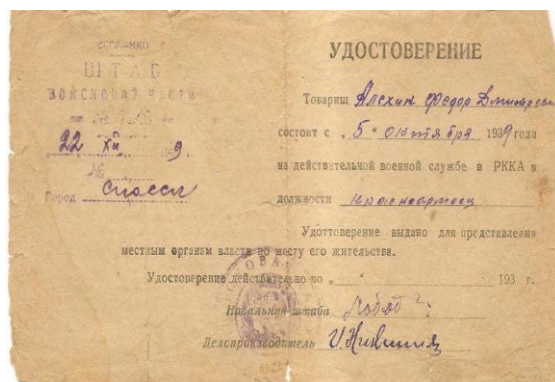 ШТАБ
ВОЙСКОВОЙ ЧАСТИ
22 XII 9.
№
Город Спасск
УДОСТОВЕРЕНИЕ
Товарищ Алехин Федор Дмитриевич
состоит с „5" октября 1939 года
на действительной военной службе в РККА в
должности Красноармеец
Удоттоверение выдано для представления
местным органам власти по месту его жительства.
Удостоверение действительно по „ " 193 г.
Начальник штаба
Делспроизводитель